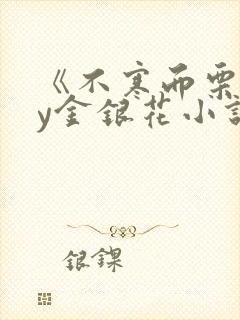 《不寒而栗
y金银花小说
银鏁